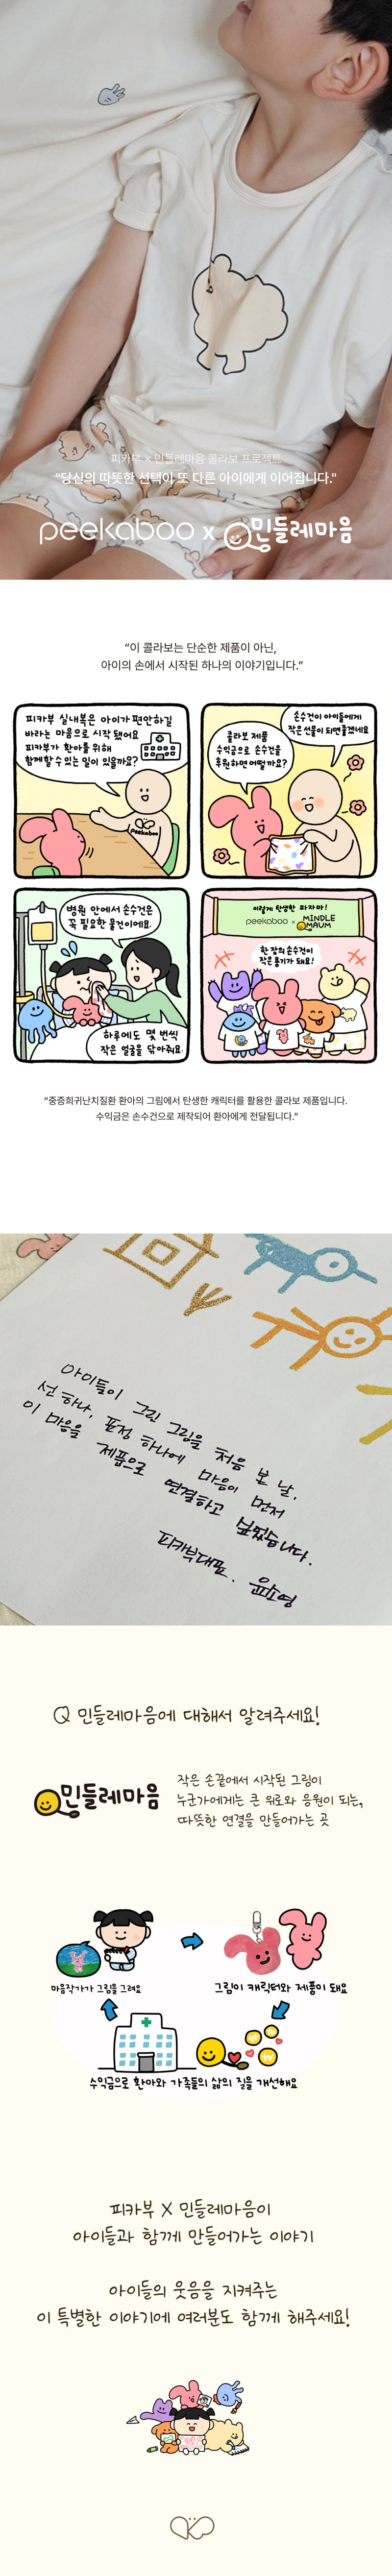 피카부 × 민들레마음 콜라보 프로젝트
"당신의 따뜻한 선택이 또 다른 아이에게 이어집니다."
peekaboo x 민들레마음
"이 콜라보는 단순한 제품이 아닌,
아이의 손에서 시작된 하나의 이야기입니다."
피카부 실내복은 아이가 편안하길
바라는 마음으로 시작 됐어요
피카부가 환아를 위해
함께할 수 있는 일이 있을까요?
Peekaboo
콜라보 제품
수익금으로 손수건을
후원하면 어떨까요?
손수건이 아이들에게
작은선물이 되면좋겠네요
병원 안에서 손수건은
꼭 필요한 물건이에요.
하루에도 몇 번씩
작은 얼굴을 닦아줘요
이렇게 탄생한 파자마!
peekaboo × MINDLE MAUM
한 장의 손수건이
작은용기가 돼요!
"중증희귀난치질환 환아의 그림에서 탄생한 캐릭터를 활용한 콜라보 제품입니다.
수익금은 손수건으로 제작되어 환아에게 전달됩니다."
아이들이 그린 그림을 처음 본 날,
선 하나, 표정 하나에 마음이 먼저
이 마음을 제품으로 연결하고 싶었습니다.
피카부대표. 윤소영
Q 민들레마음에 대해서 알려주세요!
민들레마음
작은 손끝에서 시작된 그림이
누군가에게는 큰 위로와 응원이 되는,
따뜻한 연결을 만들어가는 곳
마음작가가 그림을 그려요
그림이 캐릭터와 제품이 돼요
수익금으로 환아와 가족들의 삶의 질을 개선해요
피카부 X 민들레마음이
아이들과 함께 만들어가는 이야기
아이들의 웃음을 지켜주는
이 특별한 이야기에 여러분도 함께 해주세요!